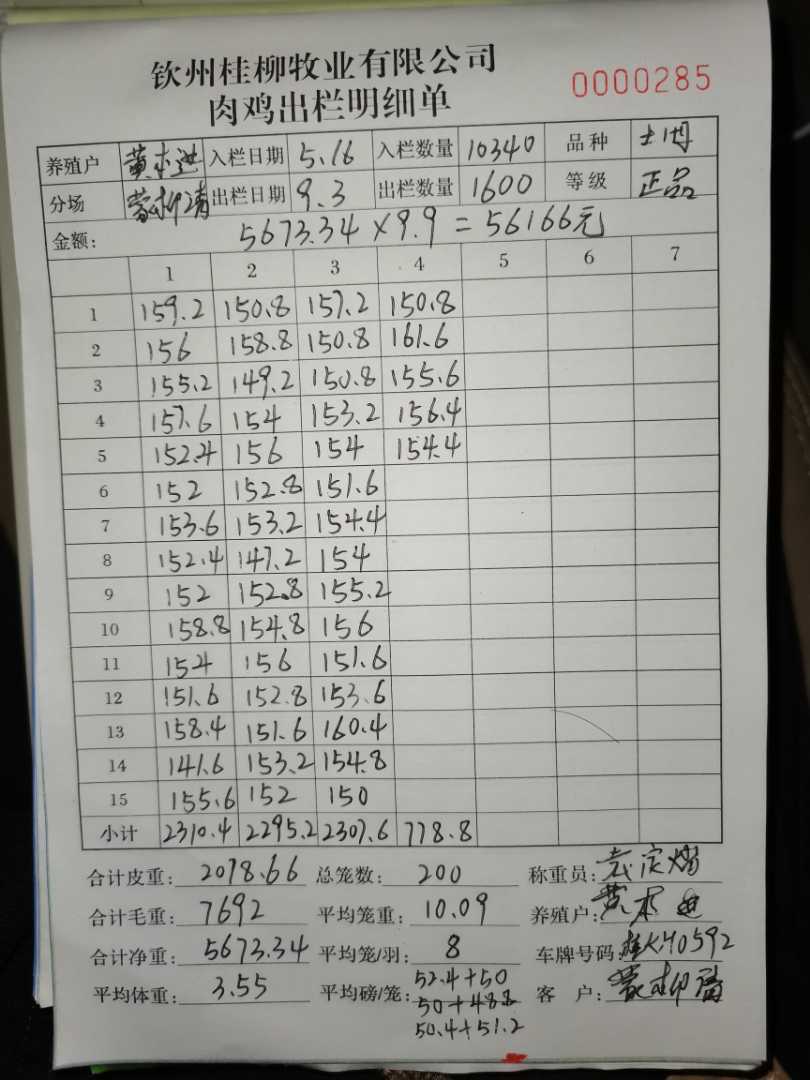 钦州桂柳牧业有限公司
肉鸡出栏明细单 0000285
养殖户 黄木进 入栏日期 5.16 入栏数量 10340 品种
分场 出栏日期 9.3 出栏数量 1600 等级 正品
金额: 5673.34×9.9=56166元
1 2 3 4 5 6 7
1 159.2 150.8 157.2 150.8
2 156 158.8 150.8 161.6
3 155.2 149.2 150.8 155.6
4 157.6 154 153.2 156.4
5 152.4 156 154 154.4
6 152 152.8 151.6
7 153.6 153.2 154.4
8 152.4 147.2 154
9 152 152.8 155.2
10 158.8 154.8 156
11 154 156 151.6
12 151.6 152.8 153.6
13 158.4 151.6 160.4
14 141.6 153.2 154.8
15 155.6 152 150
小计 2310.4 2295.2 2307.6 778.8
合计皮重: 2018.66 总笼数: 200 称重员:
合计毛重: 7692 平均笼重: 10.09 养殖户: 黄木进
合计净重: 5673.34 平均笼/羽: 8 车牌号码: 桂KY0592
平均体重: 3.55 平均磅/笼: 52.4+50 客 户:
50+48.8
50.4+51.2